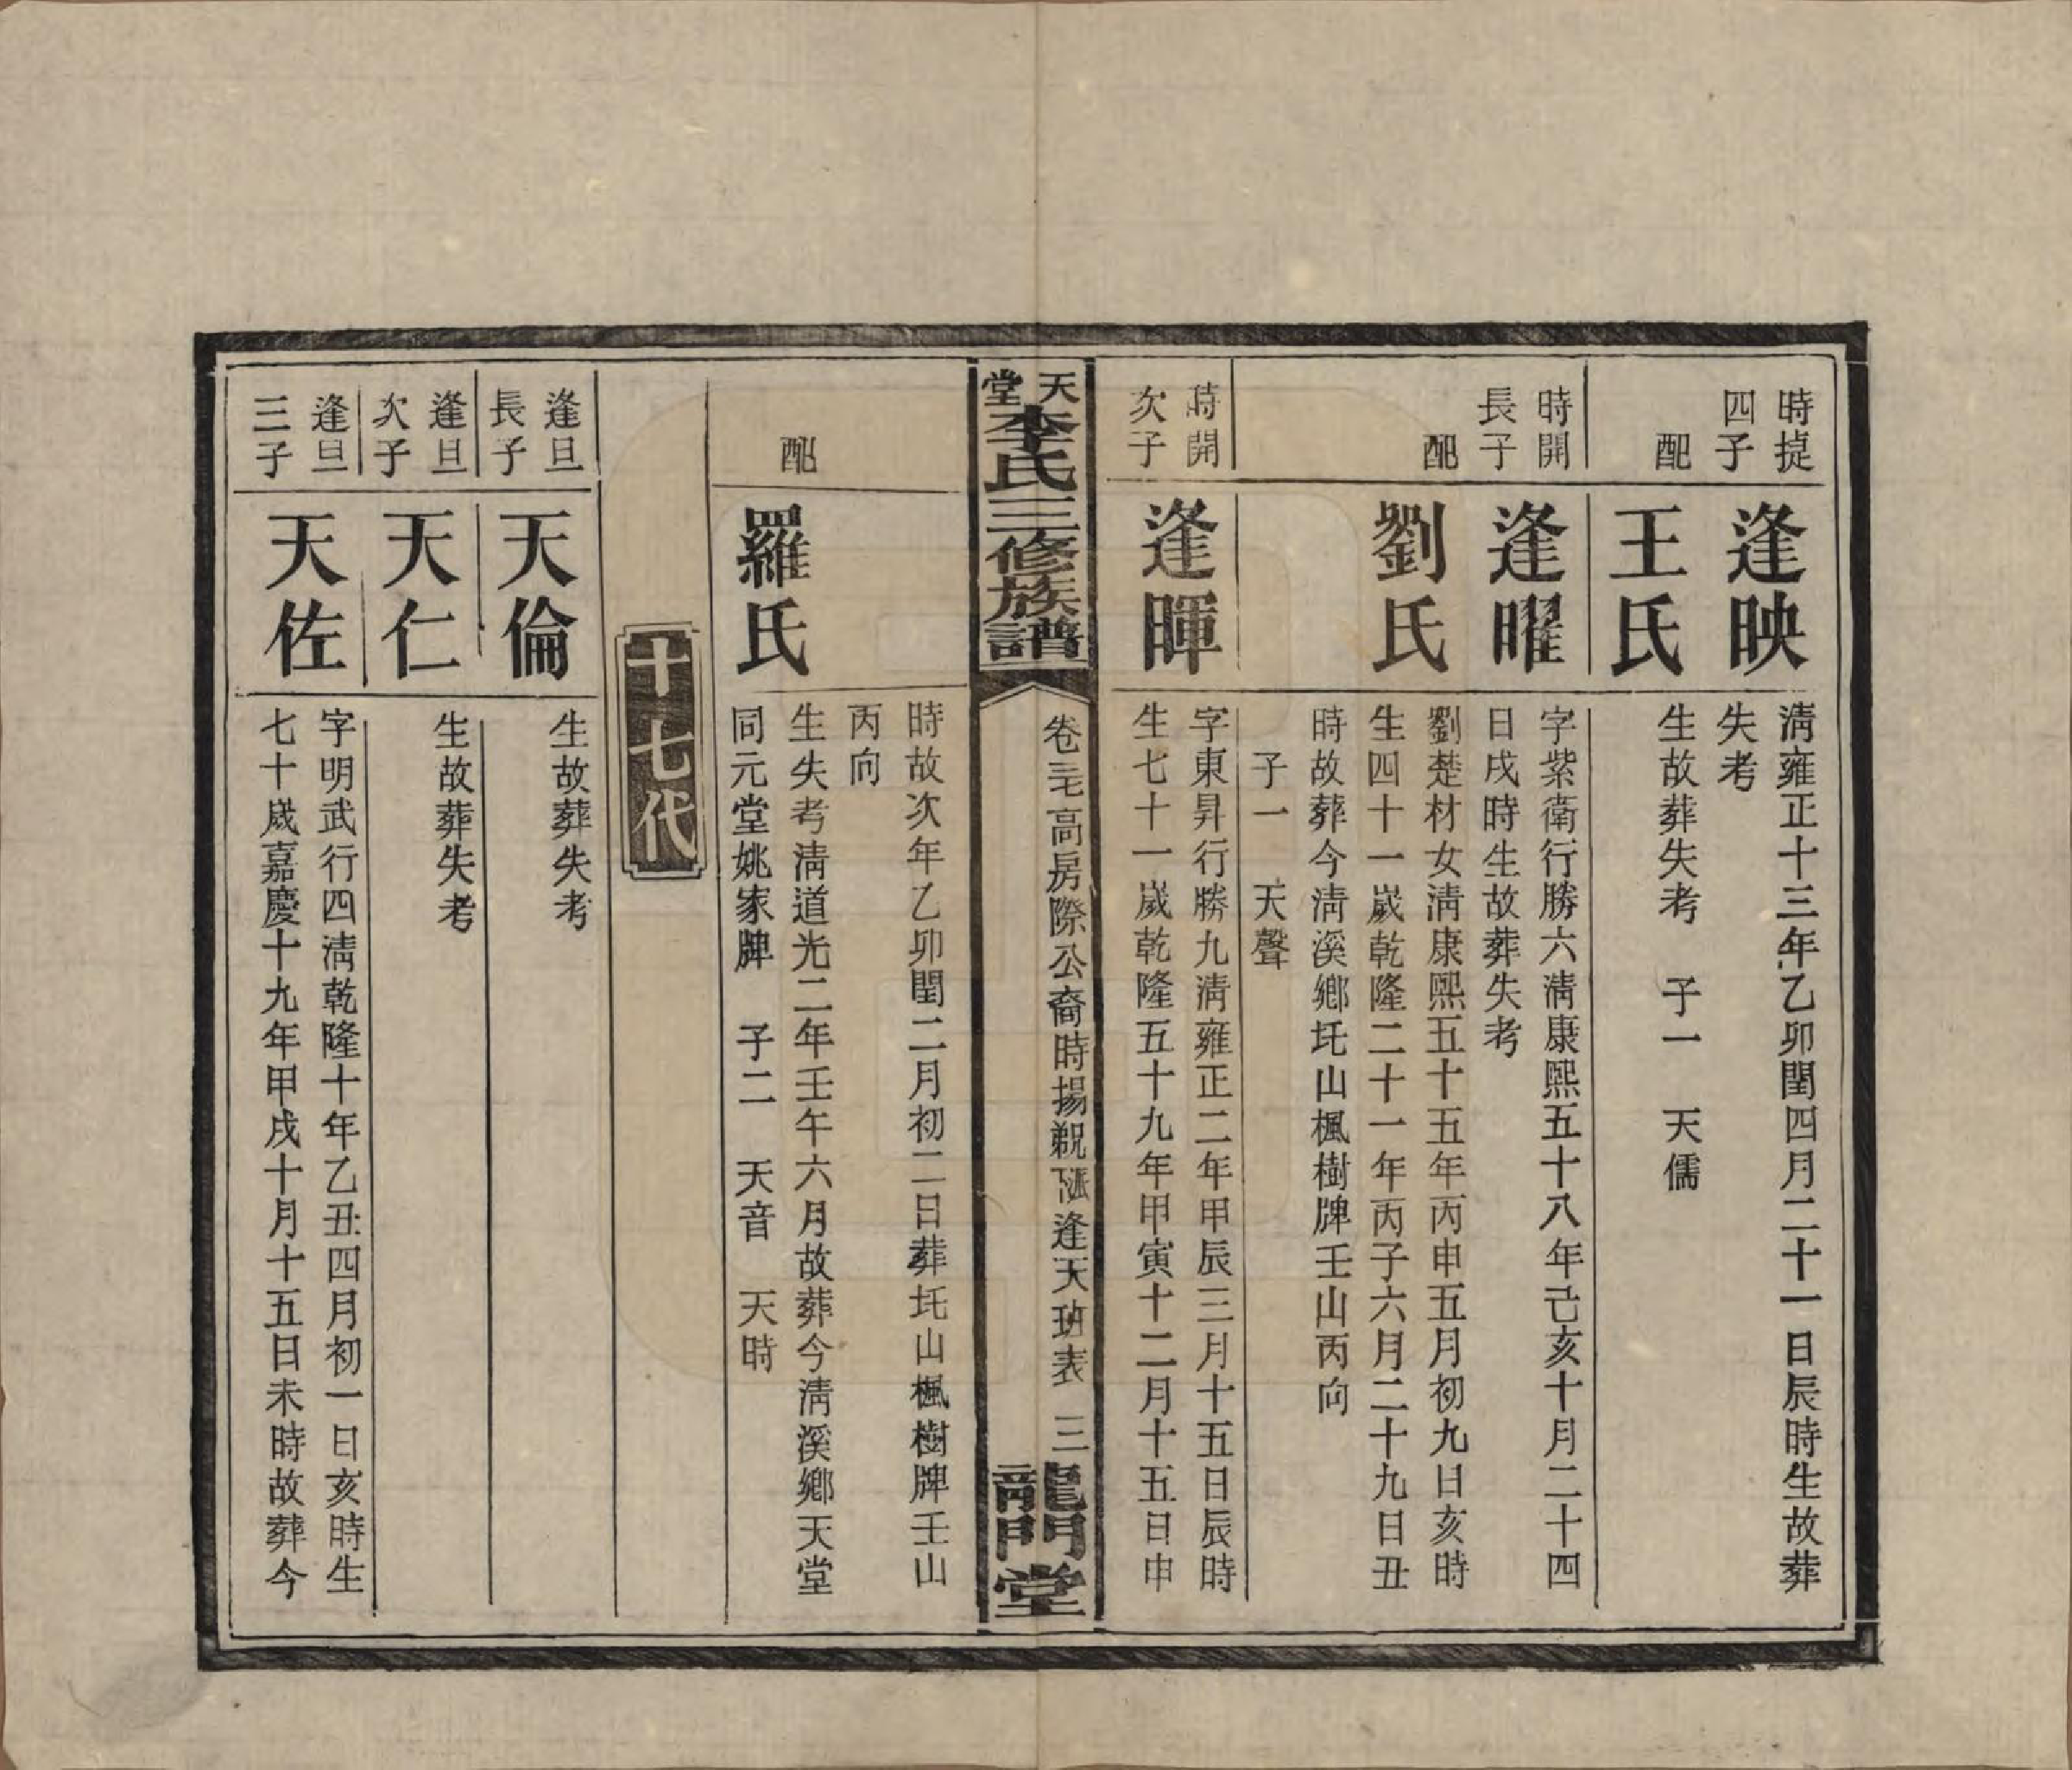 時提
四子
逢映
清雍正十三年乙卯閏四月二十一日辰時生故葬
失考
配
王氏
生故葬失考 子一 天儒
時開
長子
逢曜
字紫衛行勝六清康熙五十八年己亥十月二十四
日戌時生故葬失考
配
劉氏
劉楚材女清康熙五十五年丙申五月初九日亥時
生四十一嵗乾隆二十一年丙子六月二十九日丑
時故葬今清溪鄉圫山楓樹牌壬山丙向
子一 天聲
時開
次子
逢暉
字東昇行勝九清雍正二年甲辰三月十五日辰時
生七十一嵗乾隆五十九年甲寅十二月十五日申
天堂李氏三修族譜
卷 高房際公裔時揚 逢天班表 三
龍門堂
時故次年乙卯閏二月初二日葬圫山楓樹牌壬山
丙向
配
羅氏
生失考清道光二年壬午六月故葬今清溪鄉天堂
同元堂姚家牌 子二 天音 天時
十七代
逢旦
長子
天倫
生故葬失考
逢旦
次子
天仁
生故葬失考
逢旦
三子
天佐
字明武行四清乾隆十年乙丑四月初一日亥時生
七十嵗嘉慶十九年甲戌十月十五日未時故葬今